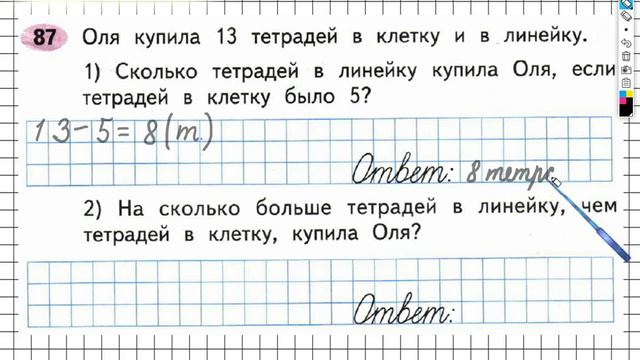 87 Оля купила 13 тетрадей в клетку и в линейку.
1) Сколько тетрадей в линейку купила Оля, если
тетрадей в клетку было 5?
13-5=8(т.)
Ответ: 8 тетра
2) На сколько больше тетрадей в линейку, чем
тетрадей в клетку, купила Оля?
Ответ: